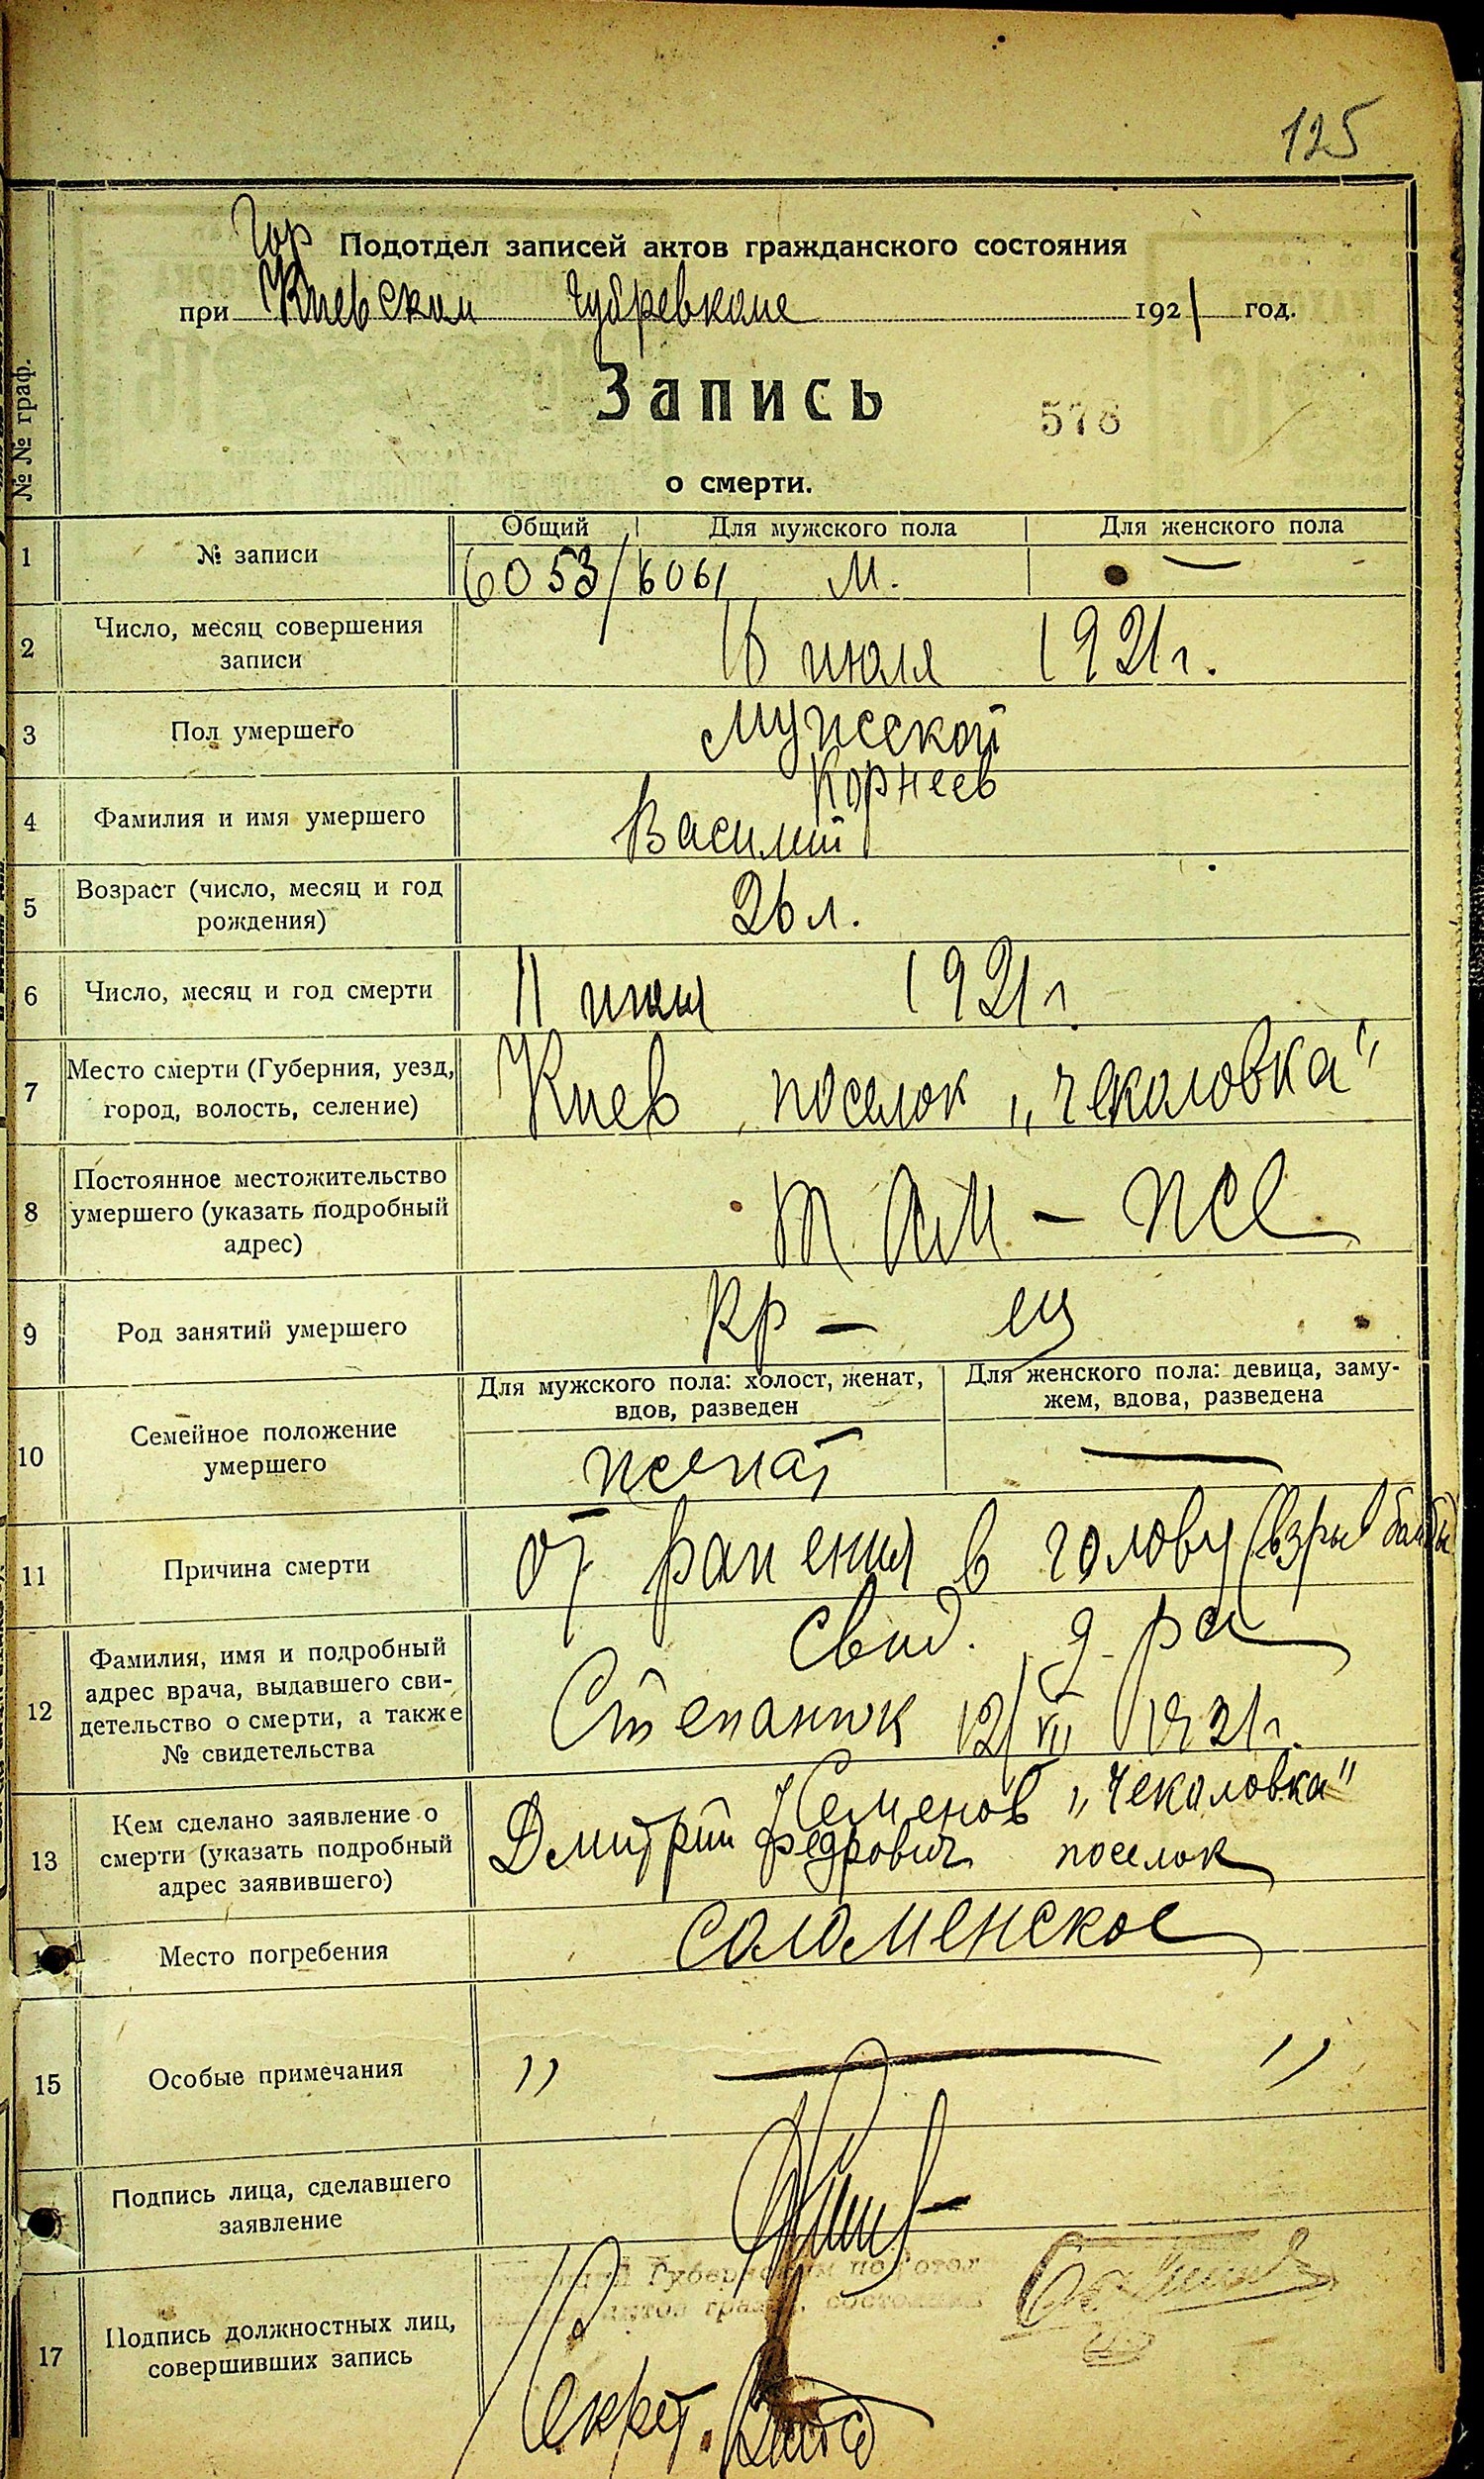 125
Гор Подотдел записей актов гражданского состояния
при Киевском Губревкоме 1921 год.
Запись
578
о смерти.
№ № граф.
Общий Для мужского пола Для женского пола
1 № записи 6053/6061 М. —
2 Число, месяц совершения
записи 16 июля 1921 г.
3 Пол умершего Мужской
4 Фамилия и имя умершего Корнеев
Василий
5 Возраст (число, месяц и год
рождения) 26 л.
6 Число, месяц и год смерти 11 июля 1921 г.
7 Место смерти (Губерния, уезд,
город, волость, селение) Киев, поселок „Чеколовка"
8 Постоянное местожительство
умершего (указать подробный
адрес) там - же
9 Род занятий умершего Кр — ец
10 Семейное положение
умершего
Для мужского пола: холост, женат,
вдов, разведен
женат
Для женского пола: девица, заму-
жем, вдова, разведена
—
11 Причина смерти От ранения в голову (взрыв бомбы)
12 Фамилия, имя и подробный
адрес врача, выдавшего сви-
детельство о смерти, а также
№ свидетельства
Свид. д-ра
Степанюк 12/VII 1921 г.
13 Кем сделано заявление о
смерти (указать подробный
адрес заявившего)
Семенов „Чеколовка"
Дмитрий Федрович поселок
Место погребения Соломенское
15 Особые примечания „ — „
Подпись лица, сделавшего
заявление
17 Подпись должностных лиц,
совершивших запись
Секрет.